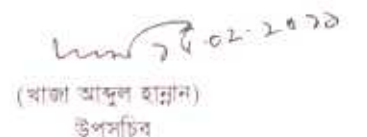 .02.2011
(খাজা আব্দুল হান্নান)
উপসচিব